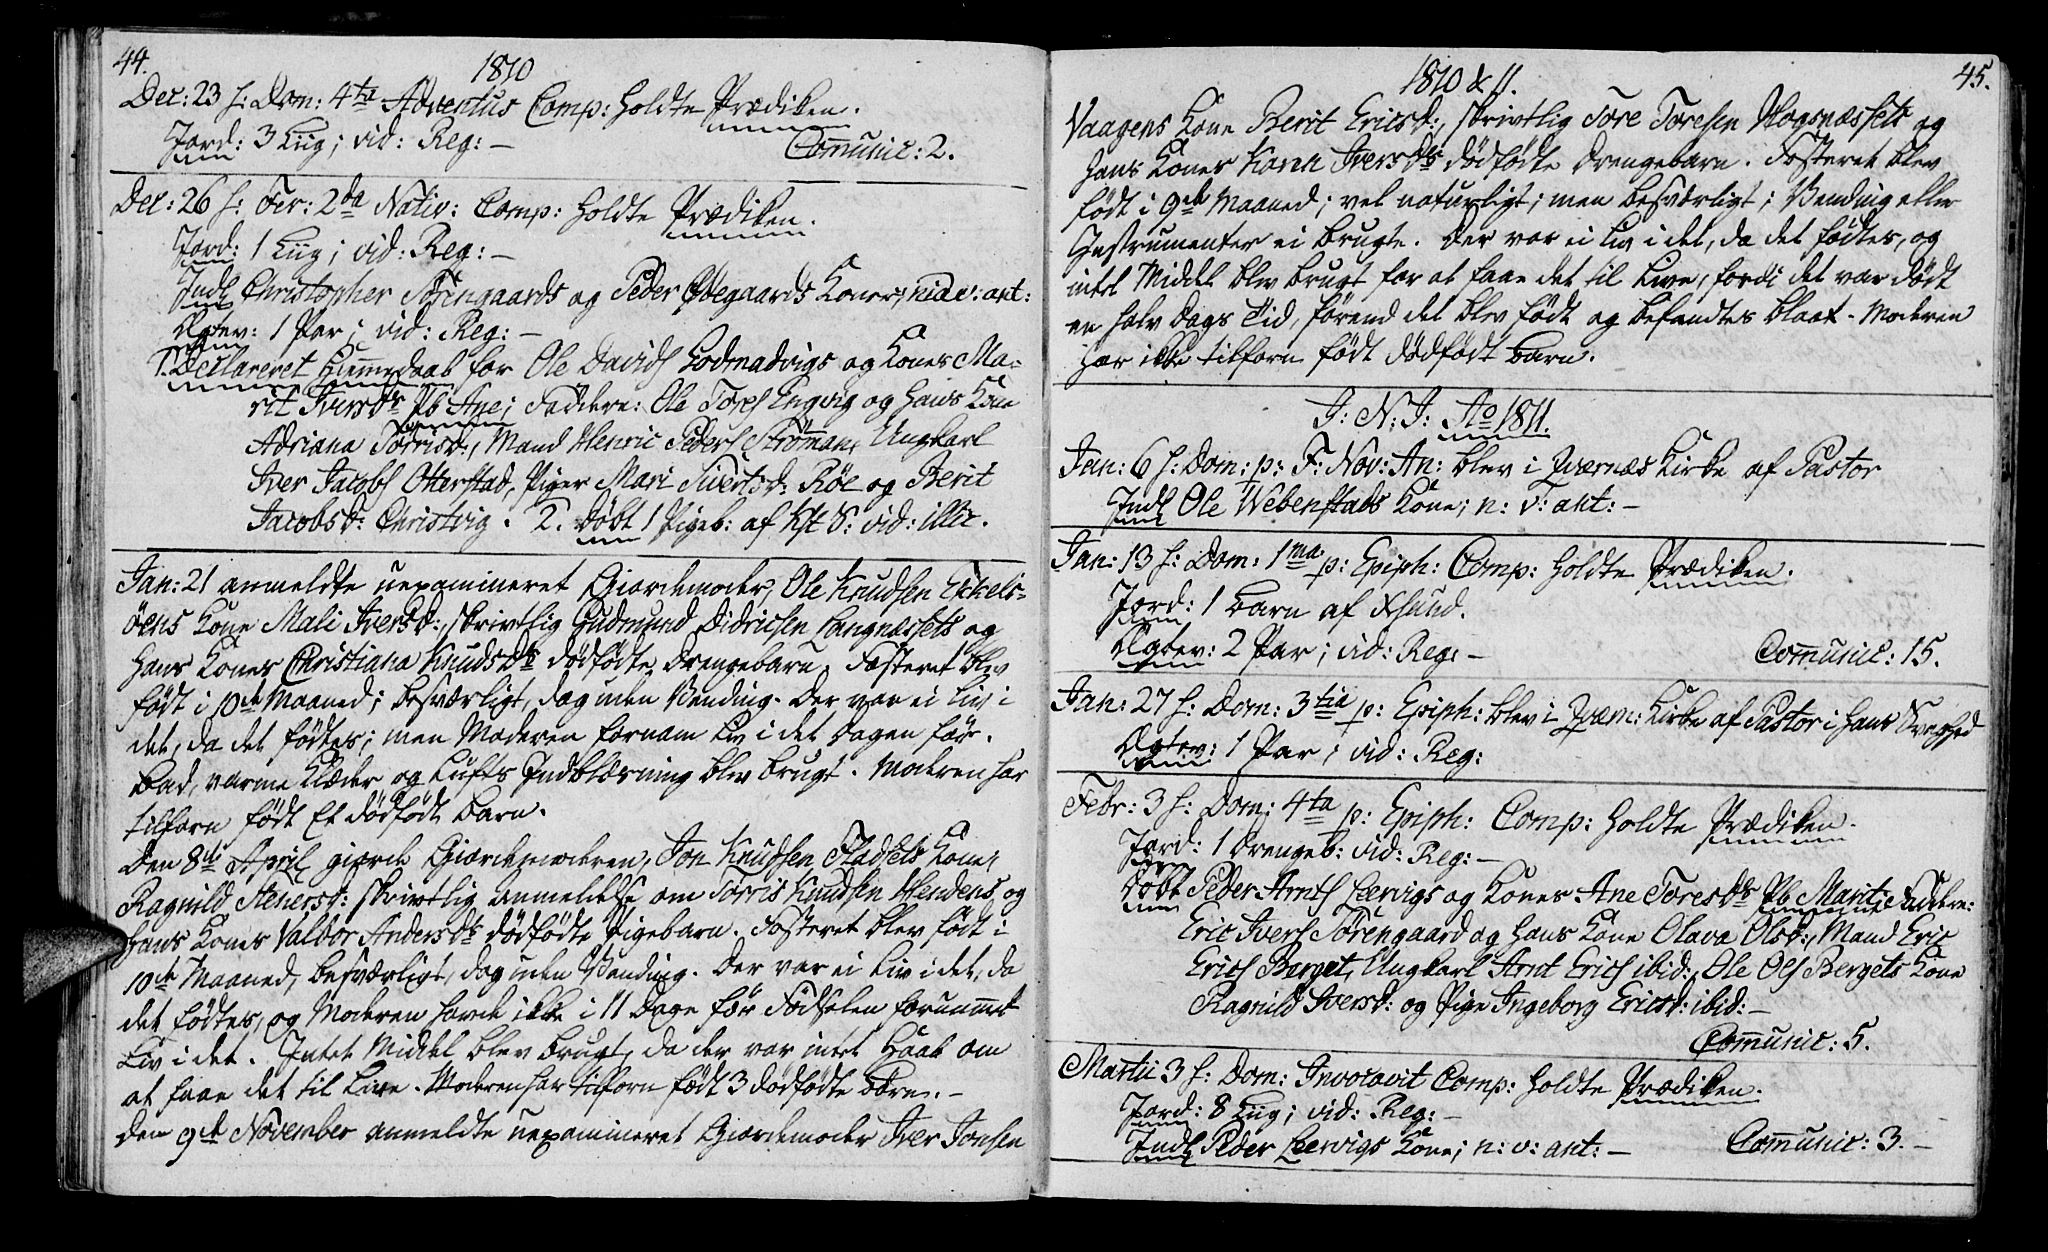 44.
1810
Dec: 23 s: Dom: 4ta Adventus Comp: holdte Prædiken.
Jord: 3 Liig; vid: Reg: —
Comunic: 2.
Dec: 26 s: Fer: 2da Nativ: Comp: holdte Prædiken.
Jord: 1 Liig; vid: Reg: —
Indl Christopher Sörengaards og Peder Ödegaards Koner; vide: ant:
Ægtev: 1 Par; vid: Reg: —
1. Declareret Hiemmedaab for Ole Davids Godmadvigs og Kones Ma-
rit Iversdr Pb Ane; Faddere: Ole Tores Engvig og hans Kone
Adriana Torrisd:, Mand Henric Peders Strömman, Ungkarl
Iver Jacobs Otterstad, Piger Mari Sivertsd: Röe og Berit
Jacobsd: Christvig. 2. Döbt 1 Pigeb: af Kst S: vid: illic.
Jan: 21 anmeldte uexamineret Giordemoder, Ole Knudsen Eckels-
öens Kone Mali Iversd:, skrivtlig Gudmund Didricsen Langnæssets og
hans Kones Christiana Knudsdr dödfödte Drengebarn. Fosteret blev
födt i 10de Maaned; besværligt, dog uden Vending. Der var ei Liv i
det, da det födtes; men Moderen fornam Liv i det Dagen för.
Bad, varme Klæder og Lufts Indblæsning blev brugt. Moderen har
tilforn födt Et dödfödt Barn.
Den 8de April giorde Giordemoderen, Jon Knudsen Stadsets Kone,
Ragnild Stenersd: skrivtlig Anmeldelse om Torris Knudsen Hendens og
hans Kones Valbor Andersdr dödfödte Pigebarn. Fosteret blev födt i
10de Maaned, besværligt, dog uden Vending. Der var ei Liv i det, da
det födtes, og Moderen havde ikke i 11 Dage för Födselen fornummet
Liv i det. Intet Middel blev brugt, da der var intet Haab om
at faae det til Live. Moderen har tilforn födt 3 dödfödte Börn. —
Den 9de November anmeldte uexamineret Giordemoder Iver Jonsen
1810 & 11.
45.
Vaagens Kone Berit Ericsd:, skrivtlig Tore Toresen Hogsnæssets og
hans Kones Karen Iversdrs dödfödte Drengebarn. Fosteret blev
födt i 9de Maaned; vel naturligt; men besværligt; Vending eller
Instrumenter ei brugte. Der var ei Liv i det, da det födtes, og
intet Middel blev brugt for at faae det til Live, fordi det var dödt
en halv Dags Tid, förend det blev födt og befandtes blaat. Moderen
har ikke tilforn födt dödfödt Barn.
I: N: J: Ao 1811.
Jan: 6 s: Dom: p: F: Nov: An: blev i Qvernæs Kirke af Pastor
Indl Ole Webenstads Kone; n: v: ant: —
Jan: 13 s: Dom: 1ma p: Epiph: Comp: holdte Prædiken.
Jord: 1 Barn af Xsund.
Ægtev: 2 Par; vid: Reg: —
Comunic: 15.
Jan: 27 s: Dom: 3tia p: Epiph: blev i Qværn: Kirke af Pastor i hans Svaghed
Ægtev: 1 Par; vid: Reg:
Febr: 3 s: Dom: 4ta p: Epiph: Comp: holdte Prædiken.
Jord: 1 Drengeb: vid: Reg: —
Döbt Peder Arnts Leervigs og Kones Ane Toresdr Pb Marit; Faddere:
Eric Ivers Sörengaard og hans Kone Olava Olsd:, Mand Eric
Erics Berget, Ungkarl Arnt Erics ibid:, Ole Ols Bergets Kone
Ragnild Iversd: og Pige Ingeborg Ericsd: ibid: —
Comunic: 5.
Martii 3 s: Dom: Invocavit Comp: holdte Prædiken.
Jord: 8 Liig; vid: Reg: —
Indl Peder Leervigs Kone; n: v: ant: —
Comunic: 3. —